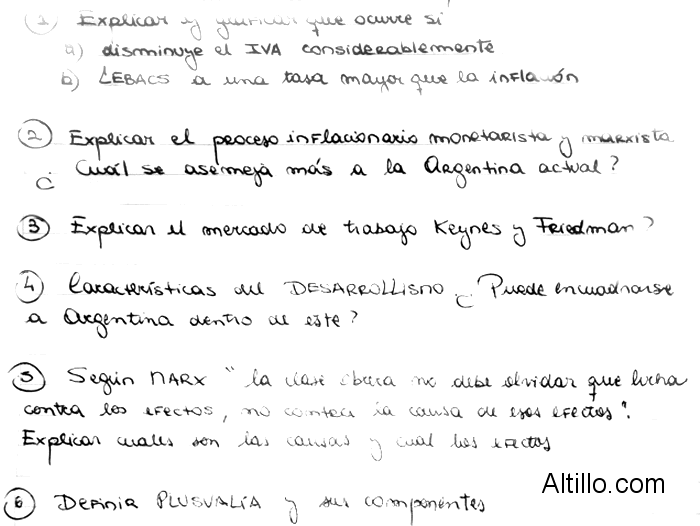 ① Explicar y graficar que ocurre si
a) disminuye el IVA considerablemente
b) LEBACS a una tasa mayor que la inflación
② Explicar el proceso inflacionario monetarista y marxista
¿ Cuál se asemeja más a la Argentina actual?
③ Explicar el mercado de trabajo Keynes y Friedman?
④ Características del DESARROLLISMO ¿ Puede encuadrarse
a Argentina dentro de este?
⑤ Según MARX "la clase obrera no debe olvidar que lucha
contra los efectos, no contra la causa de esos efectos".
Explicar cuales son las causas y cual los efectos
⑥ Definir PLUSVALÍA y sus componentes
Altillo.com